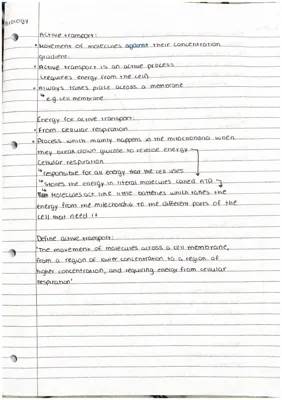 Biology
Active transport:
• Movement of molecules against their concentration
gradient.
• Active transport is an active process
(requires energy from the cell)
• Always takes place across a membrane
↳ e.g. cell membrane
Energy for active transport:
• From cellular respiration
• Process which mainly happens in the mitochondria when
they break down glucose to release energy
Cellular respiration
↳ responsible for all energy that the cell uses
↳ stores the energy in literal molecules called ATP
Molecules act like little batteries which takes the
energy from the mitochondria to the different parts of the
cell that need it
Define active transport:
'The movement of molecules across a cell membrane,
from a region of lower concentration to a region of
higher concentration, and requiring energy from cellular
respiration'